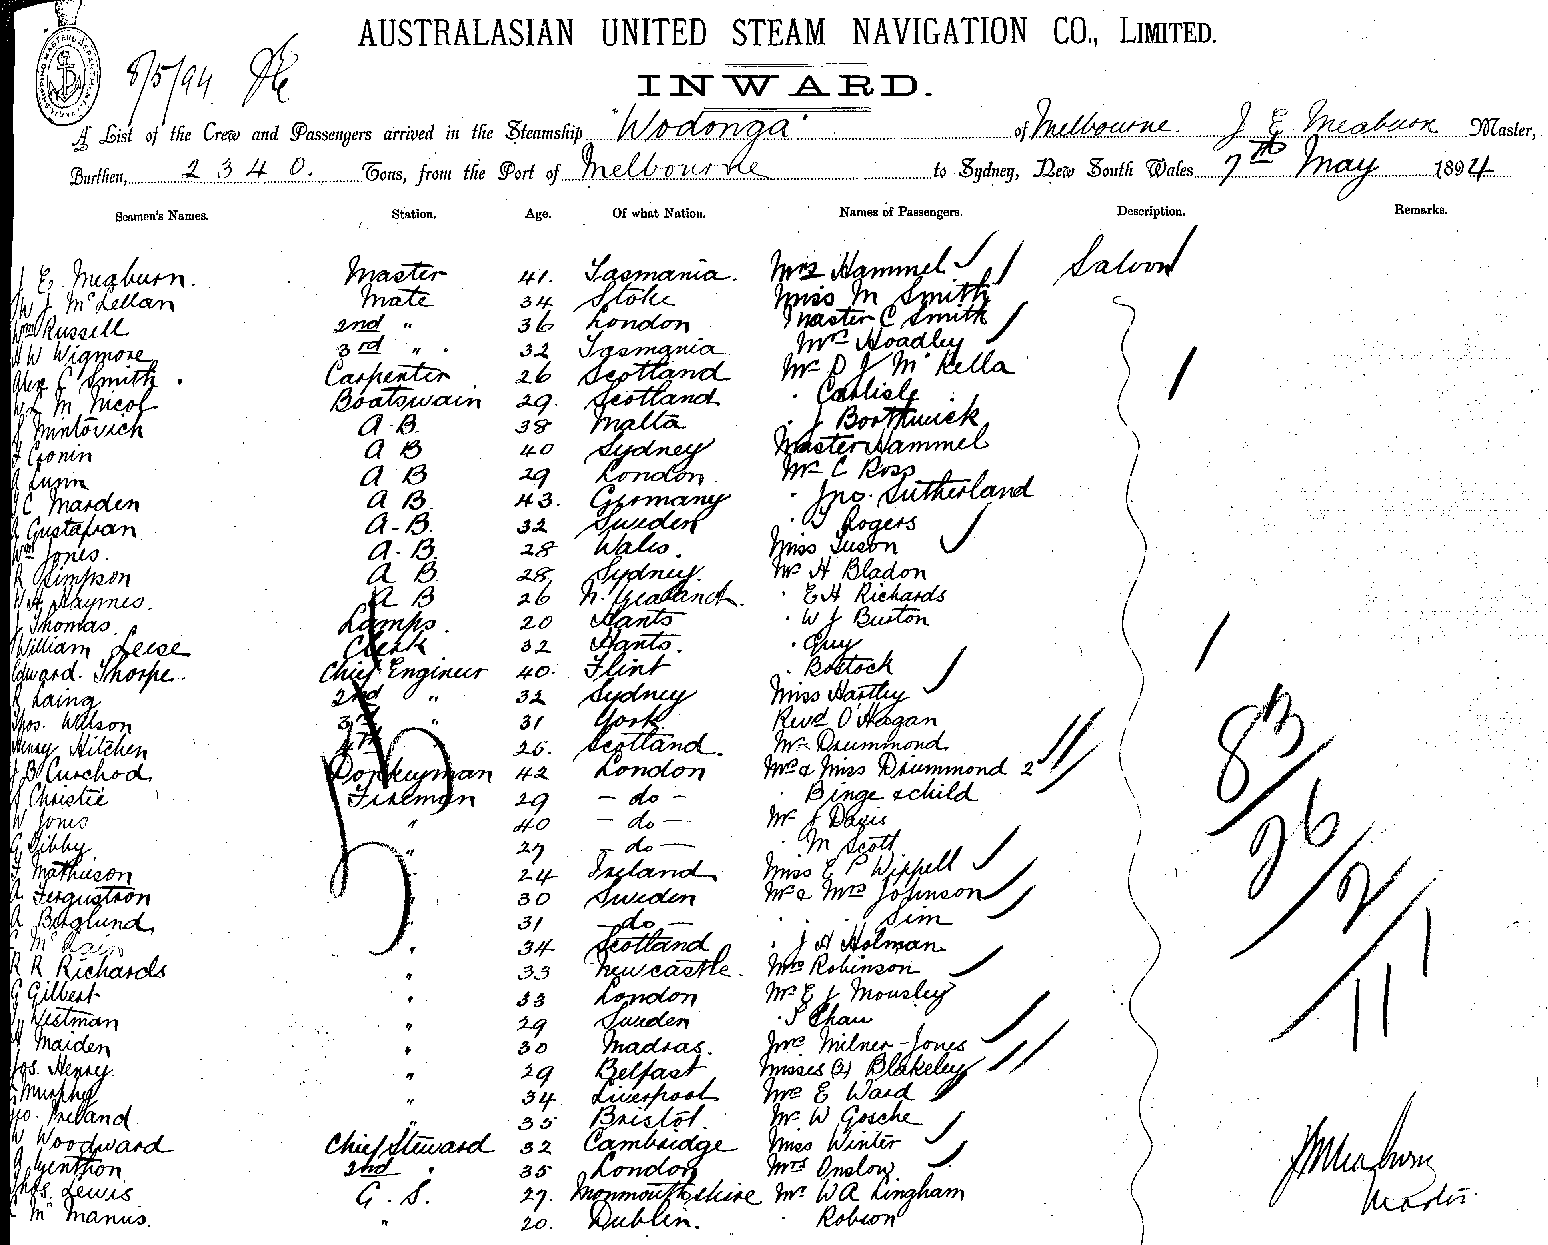 AUSTRALASIAN UNITED STEAM NAVIGATION CO., LIMITED.
8/5/94
INWARD.
A List of the Crew and Passengers arrived in the Steamship "Wodonga" of Melbourne. J E Meaburn Master,
Burthen, 2340. Tons, from the Port of Melbourne to Sydney, New South Wales 7th May 1894
Seamen's Names. Station. Age. Of what Nation. Names of Passengers. Description. Remarks.
J E. Meaburn. Master 41. Tasmania. Mrs Hammel Saloon
W J McLellan Mate 34 Stoke Miss M Smith
Wm Russell 2nd " 36 London Master C Smith
W Wigmore 3rd " 32 Tasmania Mrs Hoadley
Alex C Smith Carpenter 26 Scotland Mr D J McKella
M Nicol Boatswain 29. Scotland " Carlisle
Mintovich A.B. 38 Malta " J Borthwick
Cronin A B 40 Sydney Master Hammel
Lunn A B 29 London Mr C Ross
C Marden A B 43. Germany " Jno. Sutherland
Gustafsan A-B. 32 Sweden " T Rogers
Wm Jones. A-B. 28 Wales. Miss Tuson
R Simpson A B. 28 Sydney. Mr H Bladon
W H Haymes. A B 26 N. Zealand. " E H Richards
J Thomas. Lamps. 20 Hants " W J Buston
William Leese Clerk 32 Hants. " Guy
Edward Thorpe. Chief Engineer 40. Flint " Bostock
R Laing 2nd " 32 Sydney Miss Hartley
Thos. Watson 3rd " 31 York. Revd O'Hagan
Henry Hitchen 4th 26. Scotland. Mr Drummond
J B Curchod Donkeyman 42 London Mrs & Miss Drummond 2
Christie Fireman 29 -do- " Binge & child
W Jones " 40 -do- Mr J Davis
G Gibby " 27 -do- " M Scott
Mathieson 24 Ireland Miss E P Wippell
A Fergustron 30 Sweden Mr & Mrs Johnson
A Berglund 31 -do- " " Sim
Mc " 34 Scotland " J A Holman
R R Richards " 33 Newcastle. Mrs Robinson
G Gilbert " 33 London Mr E J Mousley
Westman " 29 Sweden
Maiden " 30 Madras. Mrs Milner-Jones
Jos. Henry. " 29 Belfast Misses (3) Blakeley
Murphy " 34 Liverpool Mrs E Ward
Geo. Ireland " 35 Bristol. Mr W Gosche
W Woodward Chief Steward 32 Cambridge Miss Winter
2nd " 35 London Mrs Onslow
Thos. Lewis G. S. 27. Monmouthshire Mr W A Lingham
McManus. " 20. Dublin. " Robson
83
26
2
11
J E Meaburn
Master.